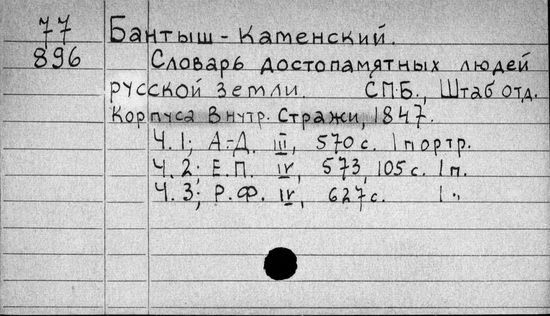 77
896
Бантыш-Каменский.
Словарь достопамятных людей
русской земли. СПБ., Штаб отд.
Корпуса Внутр. Стражи, 1847.
Ч.1; А-Д. III, 570 с. 1 портр.
Ч.2; Е.П. IV, 573, 105 с. 1 п.
Ч.3; Р.Ф. IV, 627 с. 1 "